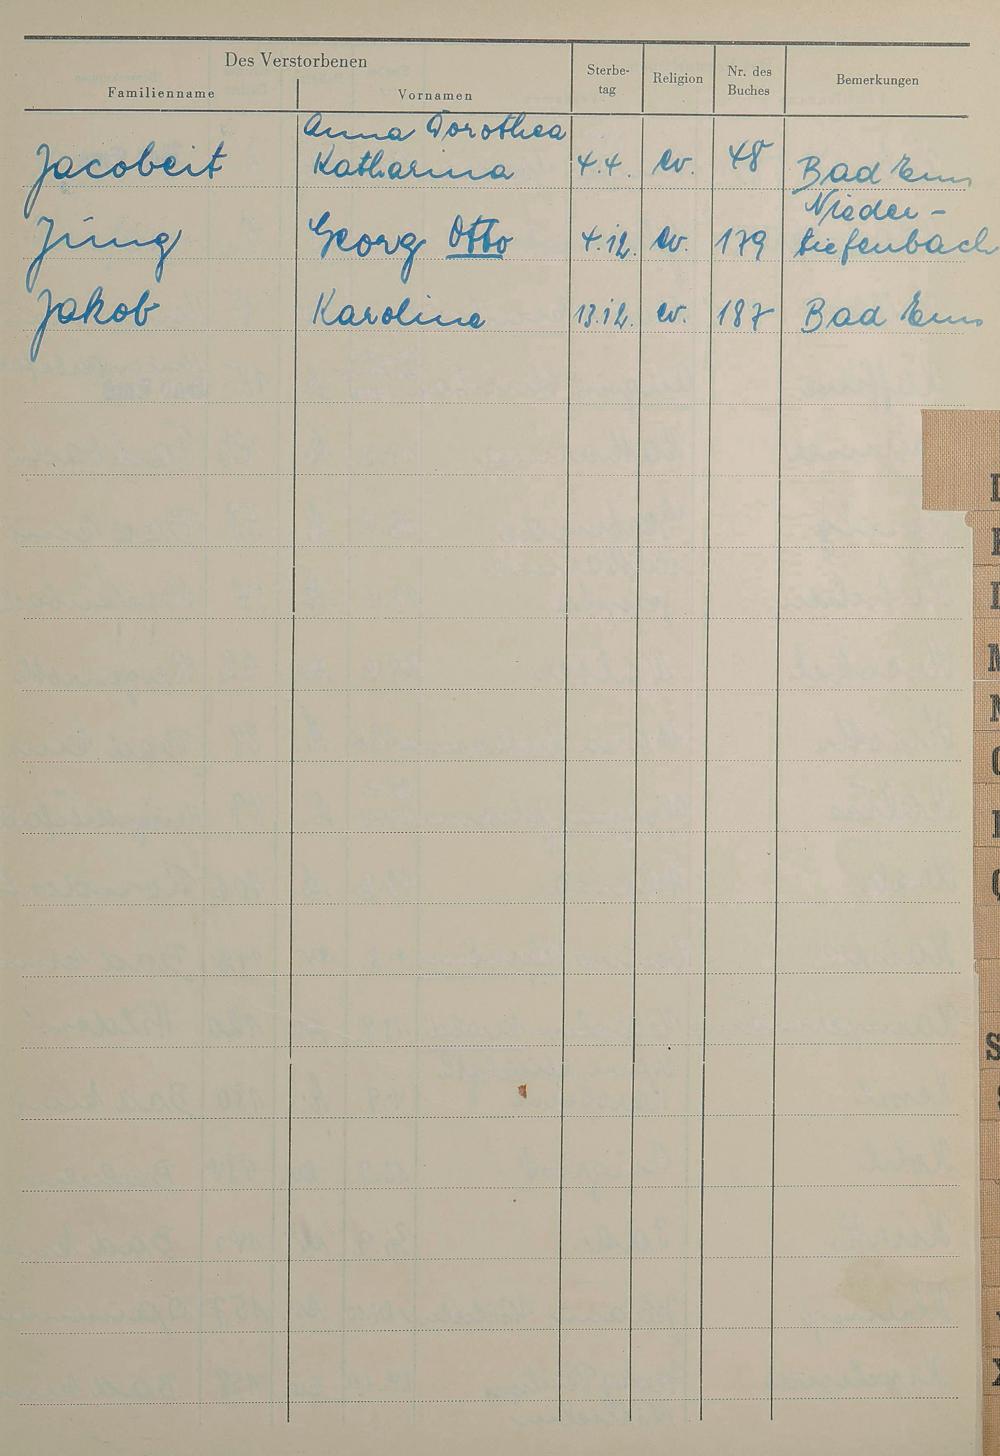 Des Verstorbenen
Familienname Vornamen Sterbe-tag Religion Nr. des Buches Bemerkungen
Anna Dorothea
Jacobeit Katharina 4.4. ev. 48 Bad Ems
Nieder-
Jung Georg Otto 4.12. ev. 179 tiefenbach
Jakob Karoline 13.12. ev. 187 Bad Ems
M
S